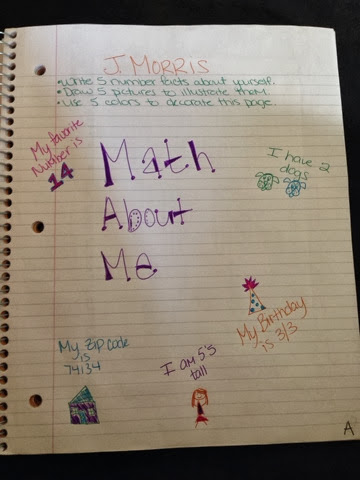 J. MORRIS
• Write 5 number facts about yourself.
• Draw 5 pictures to illustrate them.
• Use 5 colors to decorate this page.
My favorite
Number is
14
Math
About
Me
I have 2
dogs
My Birthday
is 3/3
My Zip code
is
74134
I am 5'5
tall
A